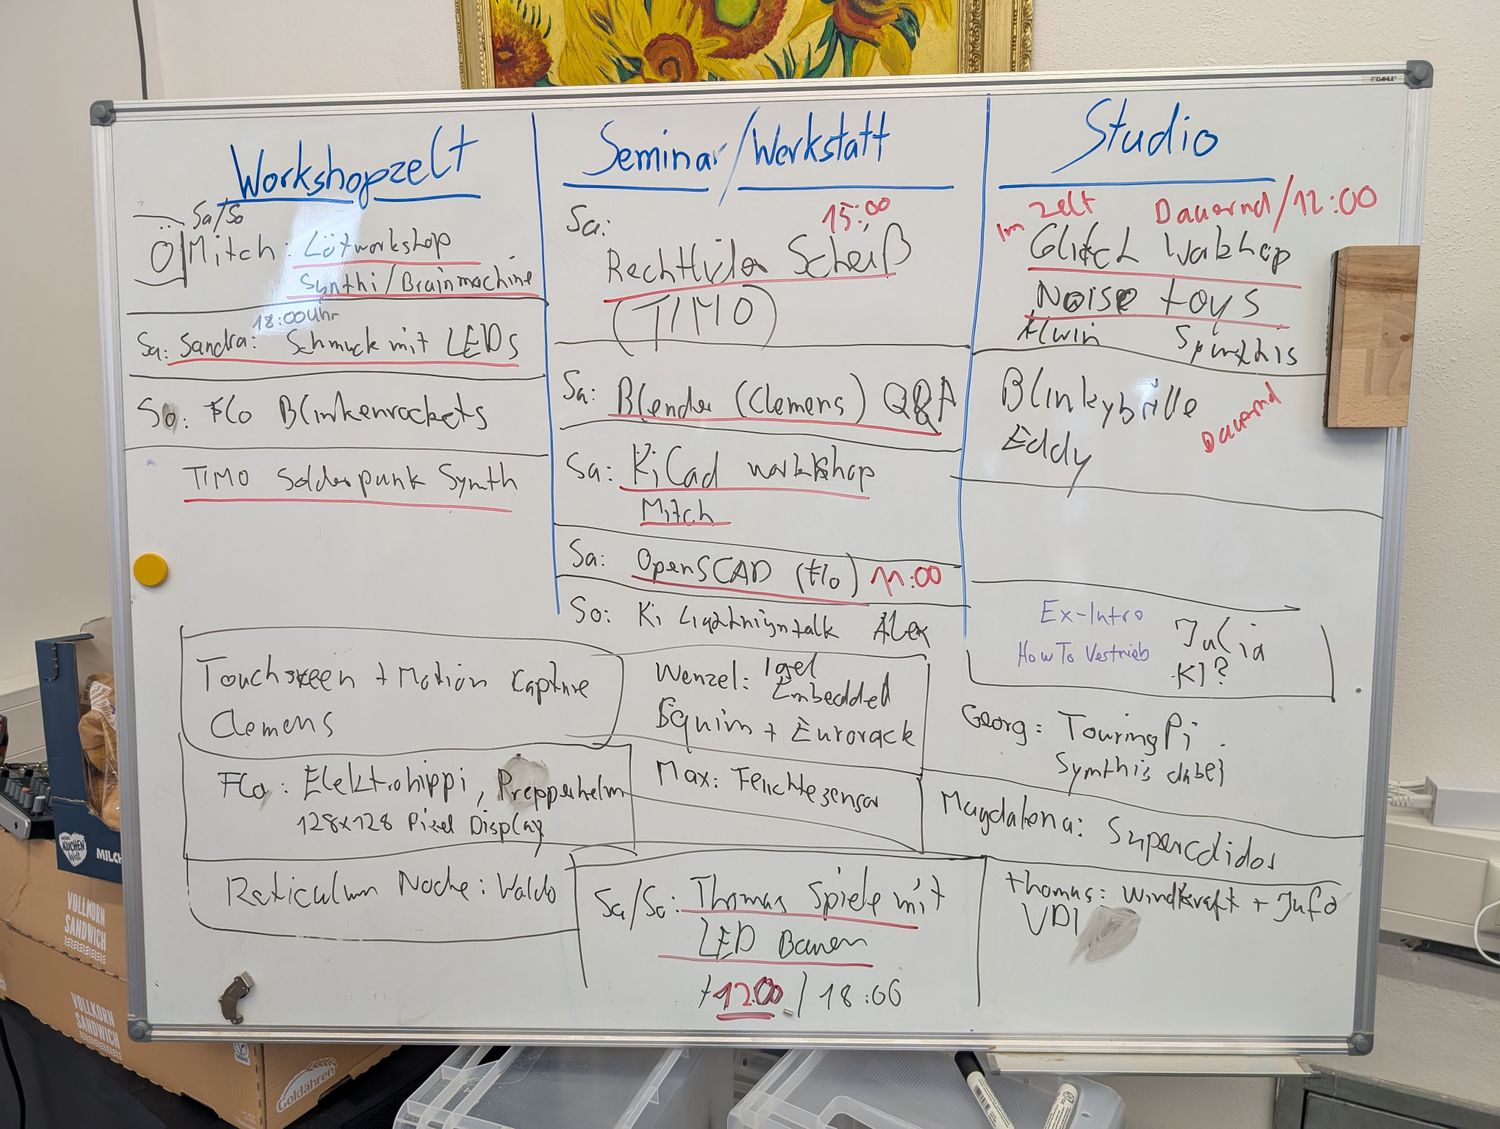 Workshopzelt
Sa/So
Mitch: Lötworkshop
Synthi/Brainmachine
18:00 Uhr
Sa: Sandra: Schmuck mit LEDs
So: Flo Blinkenrockets
TIMO Solderpunk Synth
Seminar/Werkstatt
Sa: 15:00
Scheiß
(TIMO)
Sa: Blender (Clemens) Q&A
Sa: KiCad workshop
Mitch
Sa: OpenSCAD (Flo) 11:00
So: Ki Lightnigntalk Alex
Studio
Im Zelt Dauernd/12:00
Glitch
Noise toys
Alwin
Blinkybrille
Eddy
Dauernd
Ex-Intro
How To Vestrieb
Julia
KI?
Touchscreen + Motion Capture
Clemens
Wenzel: Igel
Embedded
+ Eurorack
Georg: TouringPi
Synthis dabei
Flo: Elektrohippi, Prepperhelm
128x128 Pixel Display
Max: Feuchtesensor
Magdalena: Supercdidos
Reticulum Node: Waldo
Sa/So: Thomas Spiele mit
LED Bauen
12:00 / 18:00
Thomas: Windkraft + Info
VDI
DAHLE
MILCH
VOLLKORN
SANDWICH
VOLLKORN
SANDWICH
VOLLKORN
SANDWICH
Goldähren